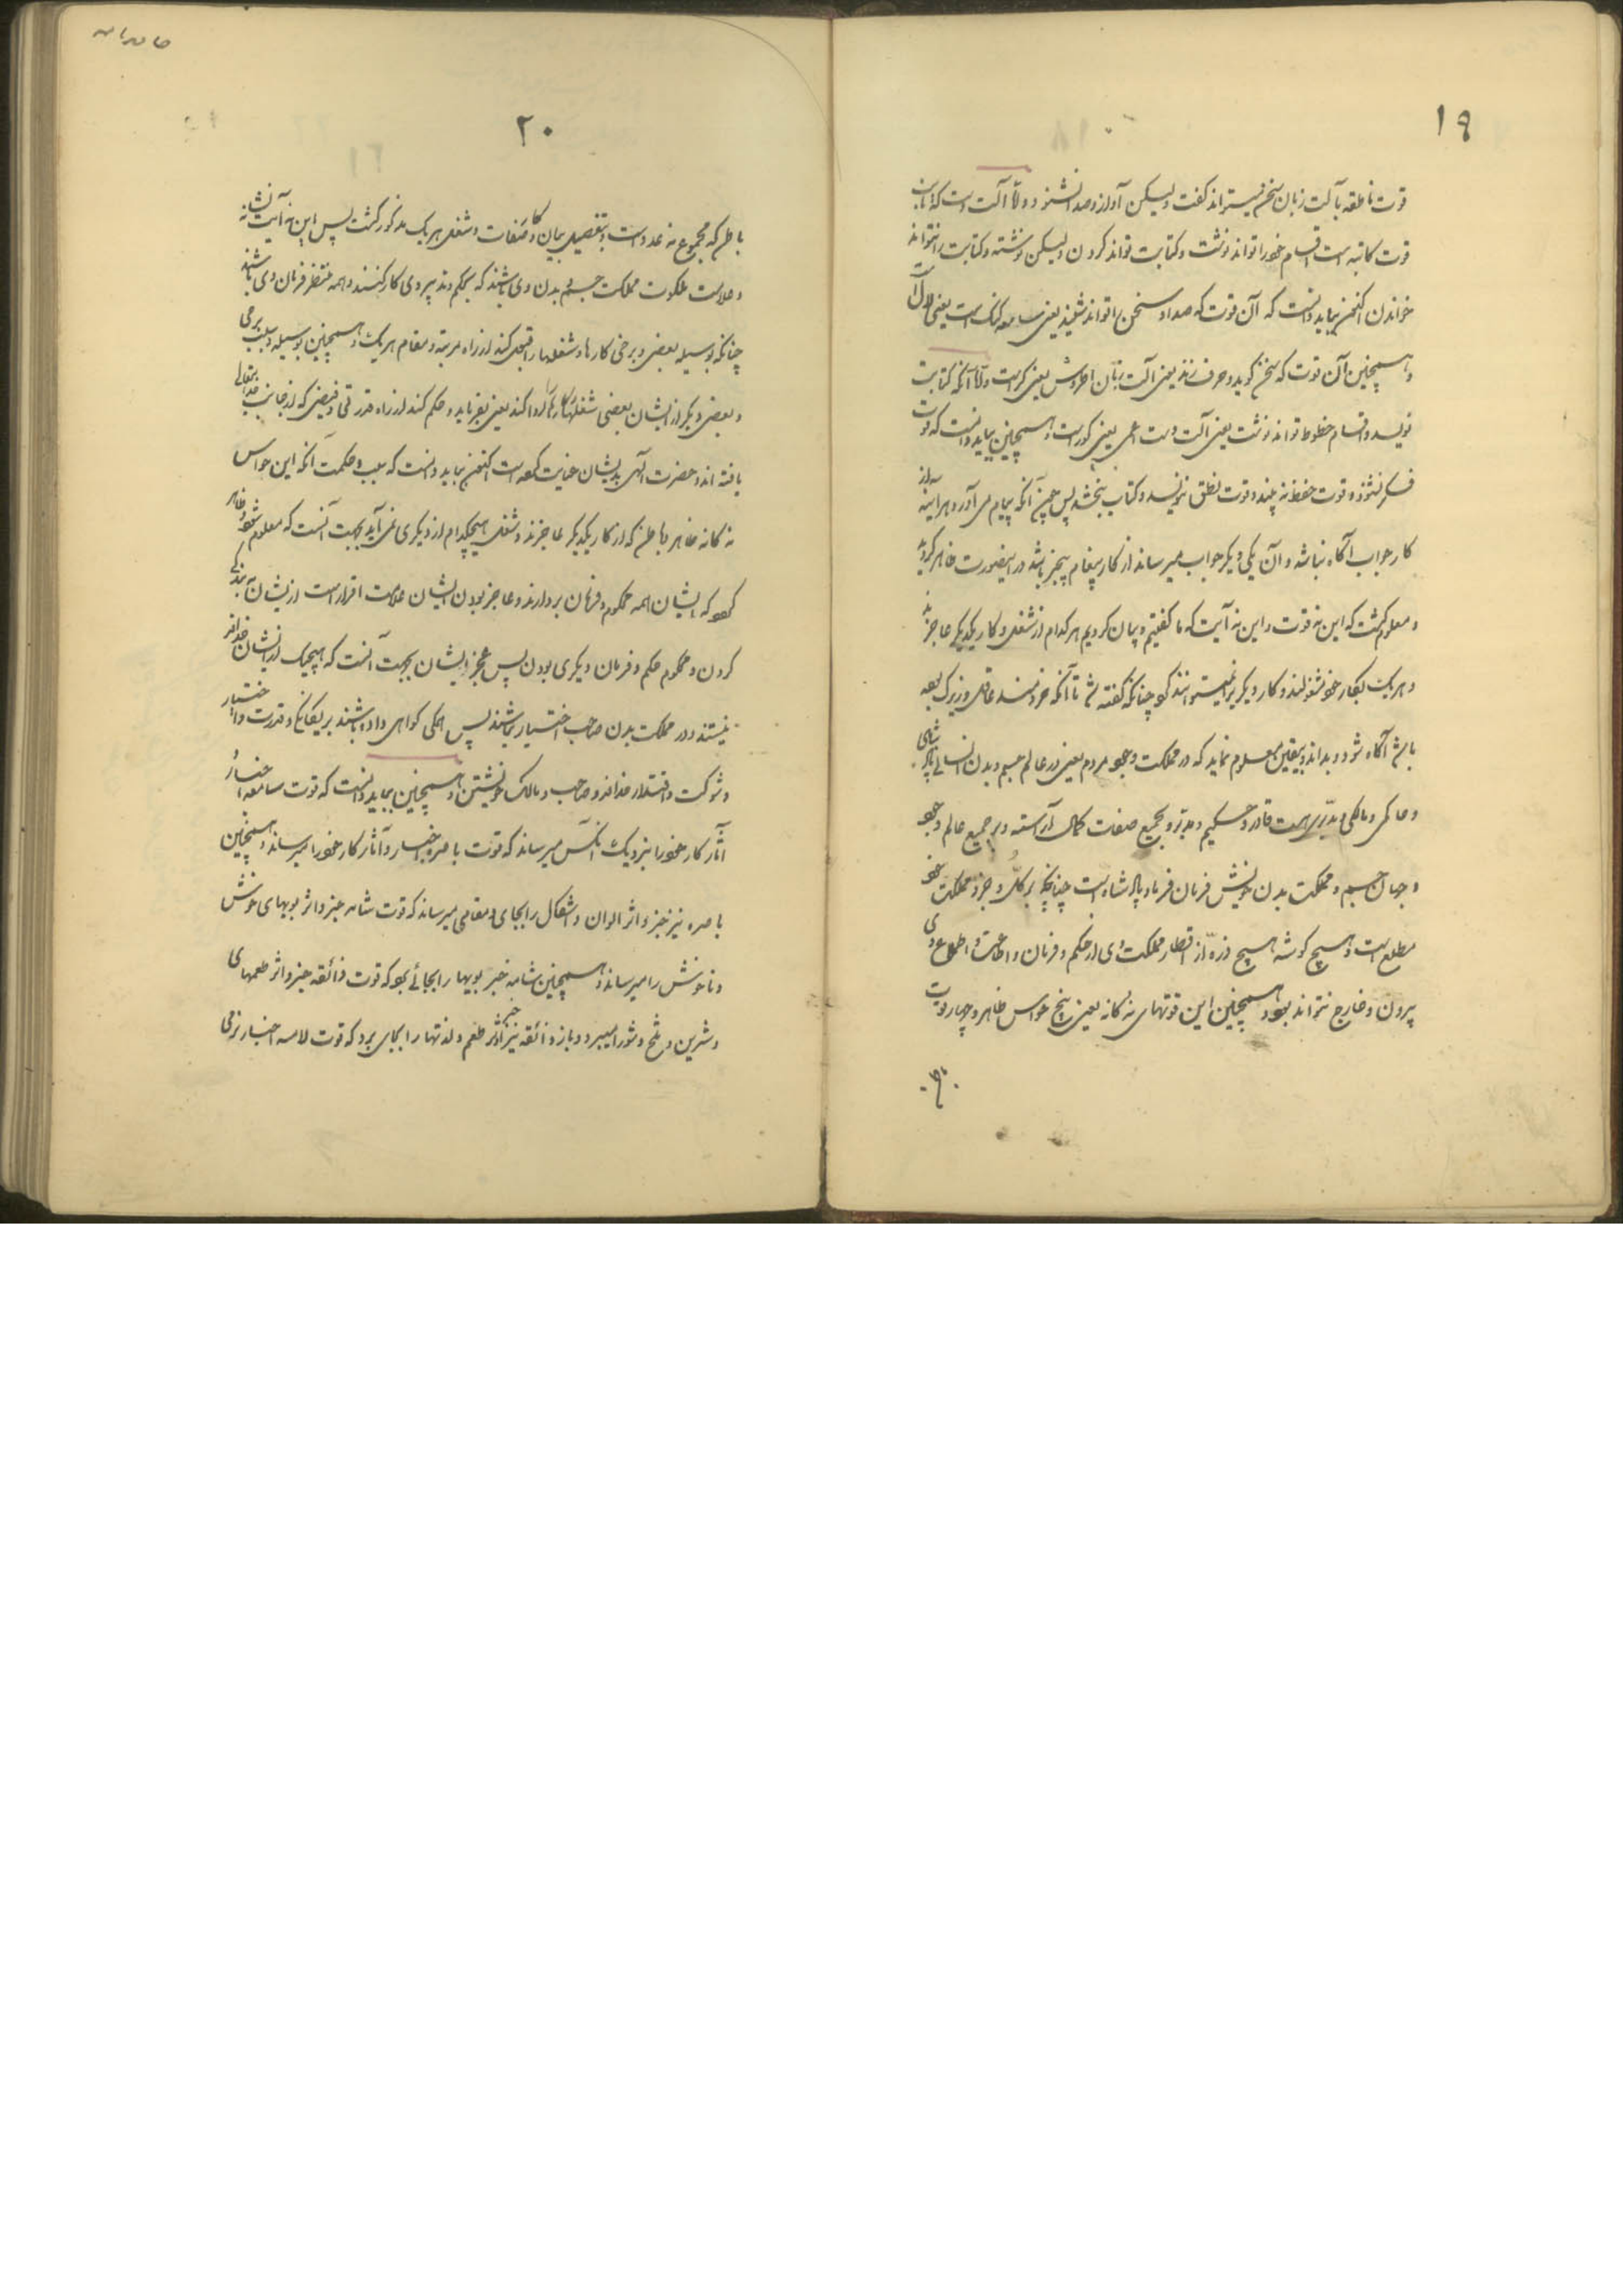 ۱۹
قوت ناطقه بآلت زبان سخن میتواند گفت ولیکن آواز و صدا نشنود و اما آلت دست که آن
قوت کاتبه است اقسام خط را تواند نوشت و کتابت تواند کردن ولیکن نوشته و کتابت را نتواند
خواندن اکنون بباید دانست که آن قوت که صدا و سخن را تواند شنید یعنی سامعه کنک است یعنی لال
و همچنین آن قوت که سخن گوید و حرف زند یعنی آلت زبان اطروش یعنی کر است و اما آنکه کتابت
نویسد و اقسام خطوط تواند نوشت یعنی آلت دست اعمی یعنی کور است و همچنین بباید دانست که قوت
فکر نشنود و قوت حفظ نه بیند و قوت نطق ننویسد و کتاب پس چون آنکه پیام می آورد هر آینه از
کار جواب آگاه نباشد و آن یکی دیگر جواب میرساند از کار پیغام بیخبر باشد در اینصورت ظاهر گردید
و معلوم گشت که این نه قوت و این نه آیت که ما گفتیم و بیان کردیم هر کدام از شغل و کار یکدیگر عاجزند
و هر یک بکار خود مشغولند و کار دیگر را نمیتوانند کرد چنانکه گفته شد تا آنکه خردمند عاقل و زیرک بوده
باشد آگاه شود و بداند و بیقین معلوم نماید که در مملکت وجود مردم یعنی در عالم جسم و بدن انسانی پادشاهی
و حاکمی و مالکی و مدبری هست قادر و حکیم و مدبر و بجمیع صفات کمال آراسته و بر جمیع عالم وجود
و جهان جسم و مملکت بدن خویش فرمان فرما و پادشاه است چنانچه بر کل و جزو مملکت خود
مطلع است و هیچ گوشه و هیچ ذره از اقطار مملکت وی از حکم و فرمان و اطاعت و اطلاع وی
بیرون و خارج نتواند بود و همچنین این قوتهای نه گانه یعنی پنج حواس ظاهر و چهار قوت
۲۰
باطن که مجموع نه عدد است و بتفصیل بیان کار و صفات و شغل هر یک مذکور گشت پس این نه آیت نشانه
و علامت ملکوت مملکت جسم و بدن وی باشند که بحکم و تدبیر وی کار کنند و همه منتظر فرمان وی باشند
چنانکه بوسیله بعضی و برخی کارها و شغلها را قبول کند از راه مرتبه و مقام هر یک و همچنین بوسیله و سبب برخی
و بعضی دیگر از ایشان بعضی شغلها و کارها را ادا کند یعنی بفرماید و حکم کند از راه قدرتی و فیضی که از جانب خدایتعالی
یافته اند و حضرت الهی بدیشان عنایت کرده است اکنون بباید دانست که سبب و حکمت آنکه این حواس
نه گانه ظاهر و باطن که از کار یکدیگر عاجزند و شغل هیچکدام از دیگری نمی آید بجهت آنست که معلوم شود و ظاهر
گردد که ایشان همه محکوم و فرمان بردارند و عاجز بودن ایشان علامت اقرار است از ایشان به بندگی
کردن و محکوم حکم و فرمان دیگری بودن پس عجز ایشان بجهت آنست که هیچیک از ایشان خداوند
نیستند و در مملکت بدن صاحب اختیار نباشند پس همگی گواهی داده باشند بر یگانگی و قدرت و اختیار
و شوکت و اقتدار خداوند و صاحب و مالک خویشتن و همچنین بباید دانست که قوت سامعه اخبار و
آثار کار خود را بنزدیک آنکس میرساند که قوت باصره اخبار و آثار کار خود را میرساند و همچنین
باصره نیز خبر و اثر الوان و اشکال را بجای و مقامی میرساند که قوت شامه خبر و اثر بویهای خوش
و ناخوش را میرساند و همچنین شامه خبر بویها را بجائی برد که قوت ذائقه خبر و اثر طعمهای
و شیرین و تلخ و شور را میبرد و باز ذائقه نیز خبر و اثر طعم و لذتها را بجای برد که قوت لامسه اخبار نرمی